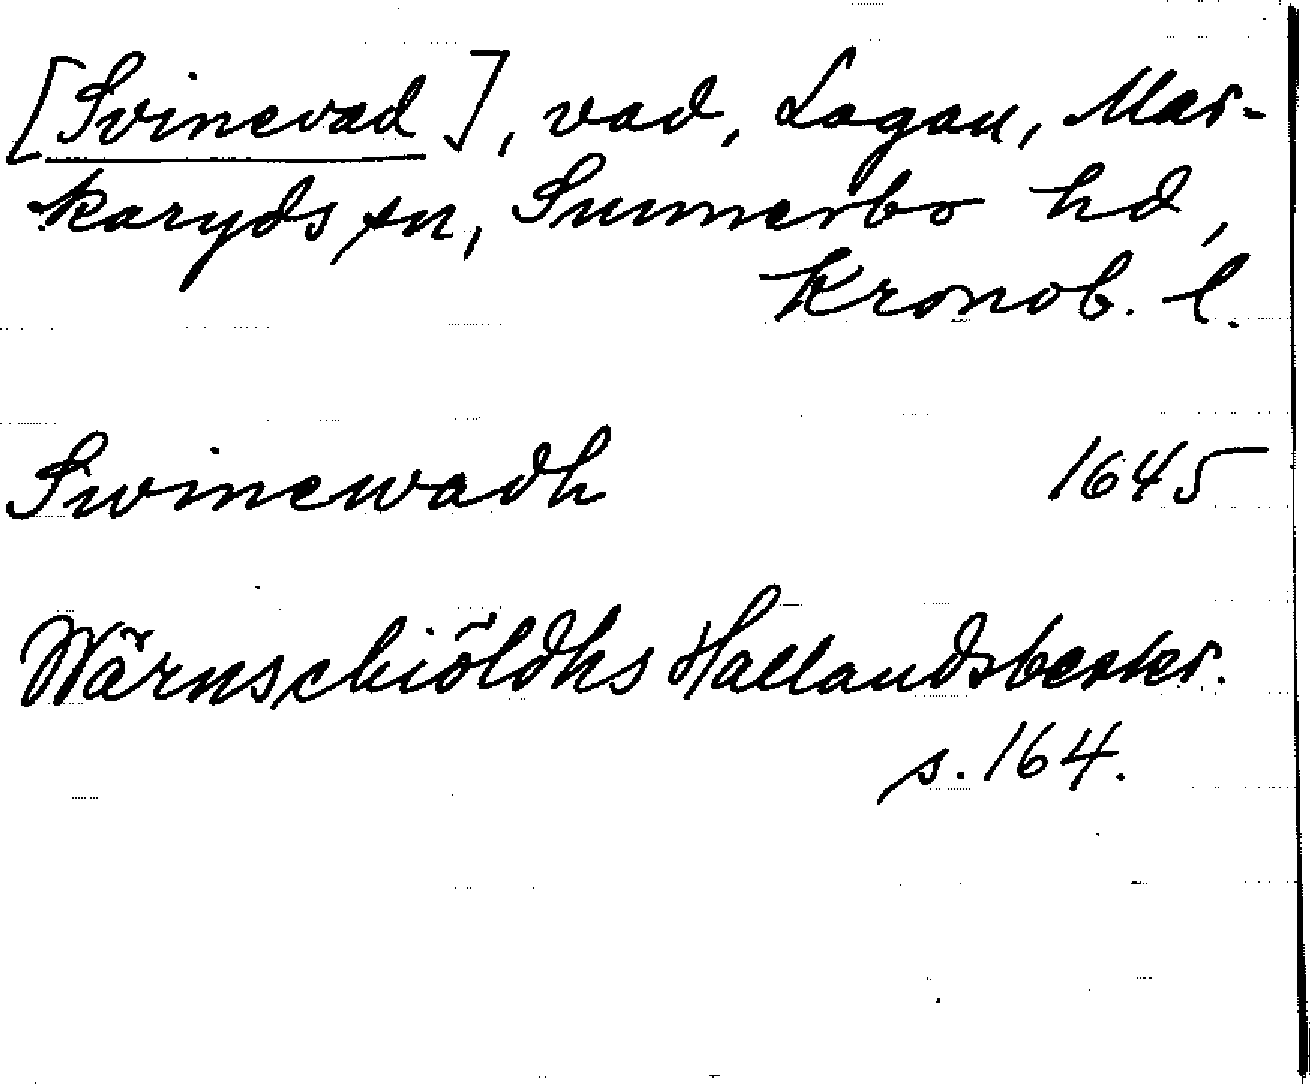 [Svinevad], vad, Lagan, Mar-
karyds sn, Sunnerbo hd,
Kronob. l.
Swinewadh 1645
Wärnschiöldhs Hallandsbeskr.
s. 164.